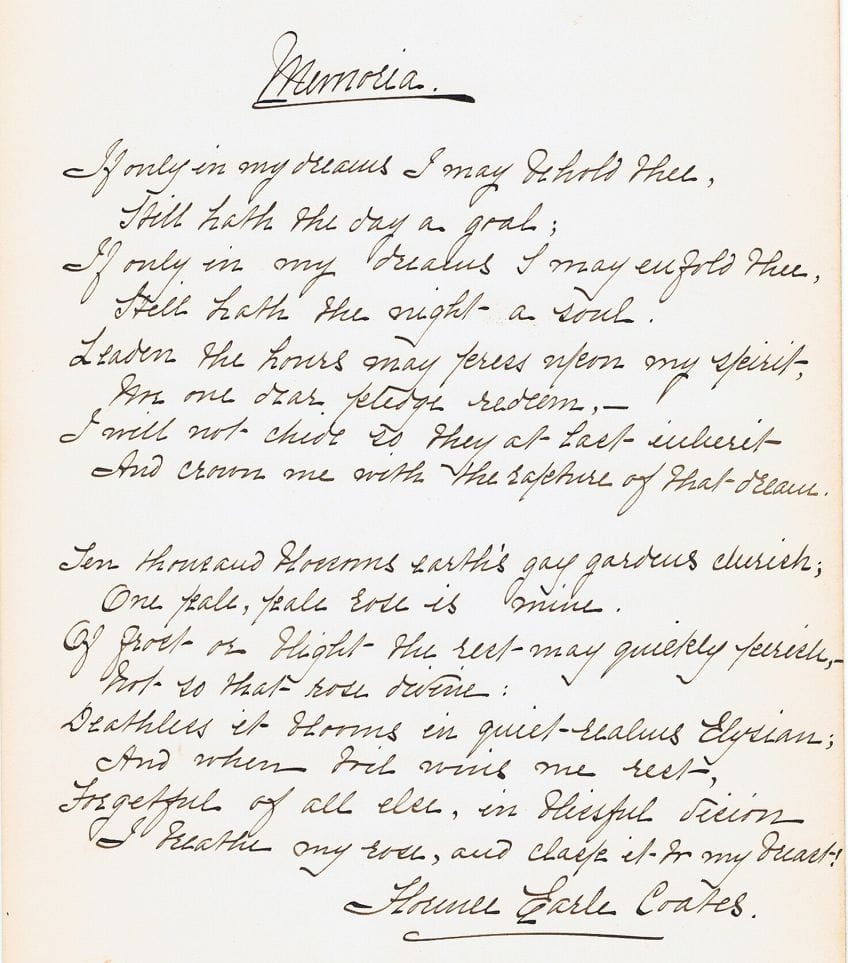 Memoria.
If only in my dreams I may behold thee,
Still hath the day a goal;
If only in my dreams I may enfold thee,
Still hath the night a soul.
Leaden the hours may press upon my spirit,
Nor one dear pledge redeem,—
I will not chide so they at last inherit
And crown me with the rapture of that dream.
Ten thousand blossoms earth's gay gardens cherish;
One pale, pale rose is mine.
Of frost or blight the rest may quickly perish,—
Not so that rose divine:
Deathless it blooms in quiet realms Elysian;
And when toil wins me rest,
Forgetful of all else, in blissful vision
I breathe my rose, and clasp it to my breast!
Florence Earle Coates.